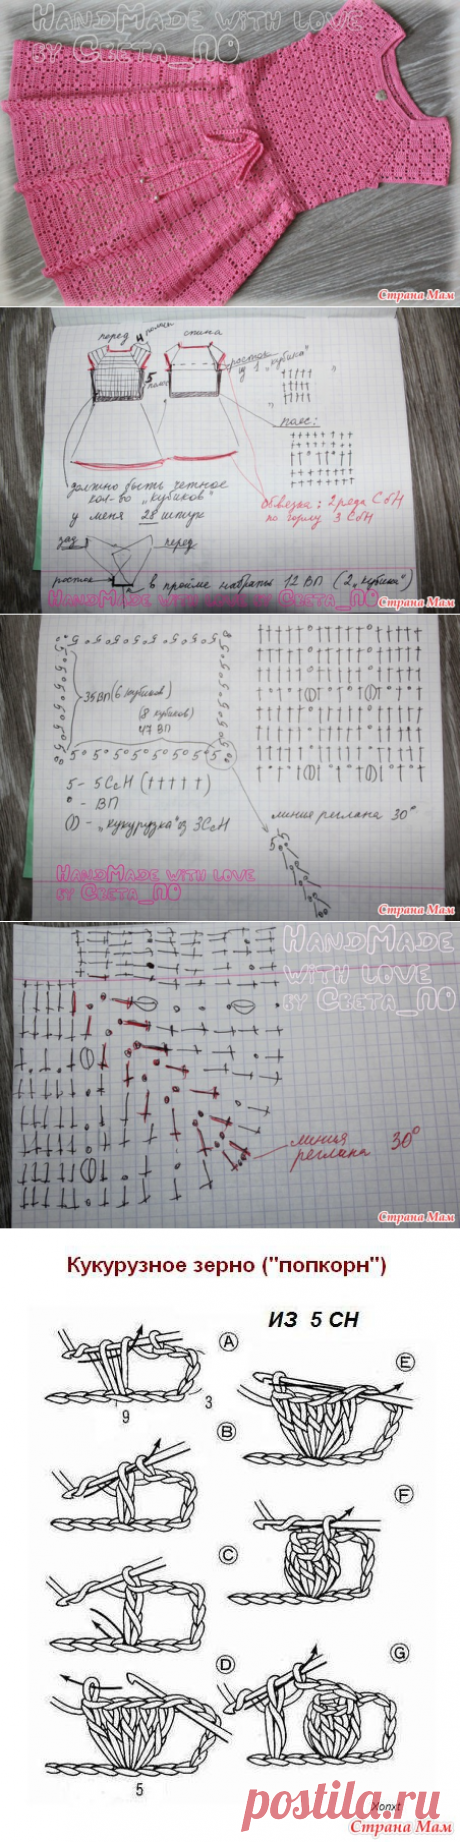 HandMade with love
by Света_ПО
Страна Мам
перед
спина
росток
из 1 "кубика"
5
пояс:
должно быть четное
кол-во "кубиков"
у меня 28 штук
обвязка: 2 ряда СбН
по горлу 3 СбН
зад
перед
росток
в пройме набраты 12 ВП (2 "кубика")
HandMade with love by Света_ПО
Страна Мам
35 ВП (6 кубиков)
(8 кубиков)
47 ВП
5 - 5 СсН (†††††)
° - ВП
() - "кукурузка" из 3 СсН
линия реглана 30°
HandMade with love
by Света_ПО
Страна Мам
HandMade
with love
by Света_ПО
линия
реглана 30°
Страна Мам
Кукурузное зерно ("попкорн")
ИЗ 5 СН
A
E
9
3
B
F
C
G
D
5
Xonxt
postila.ru
Страна Мам